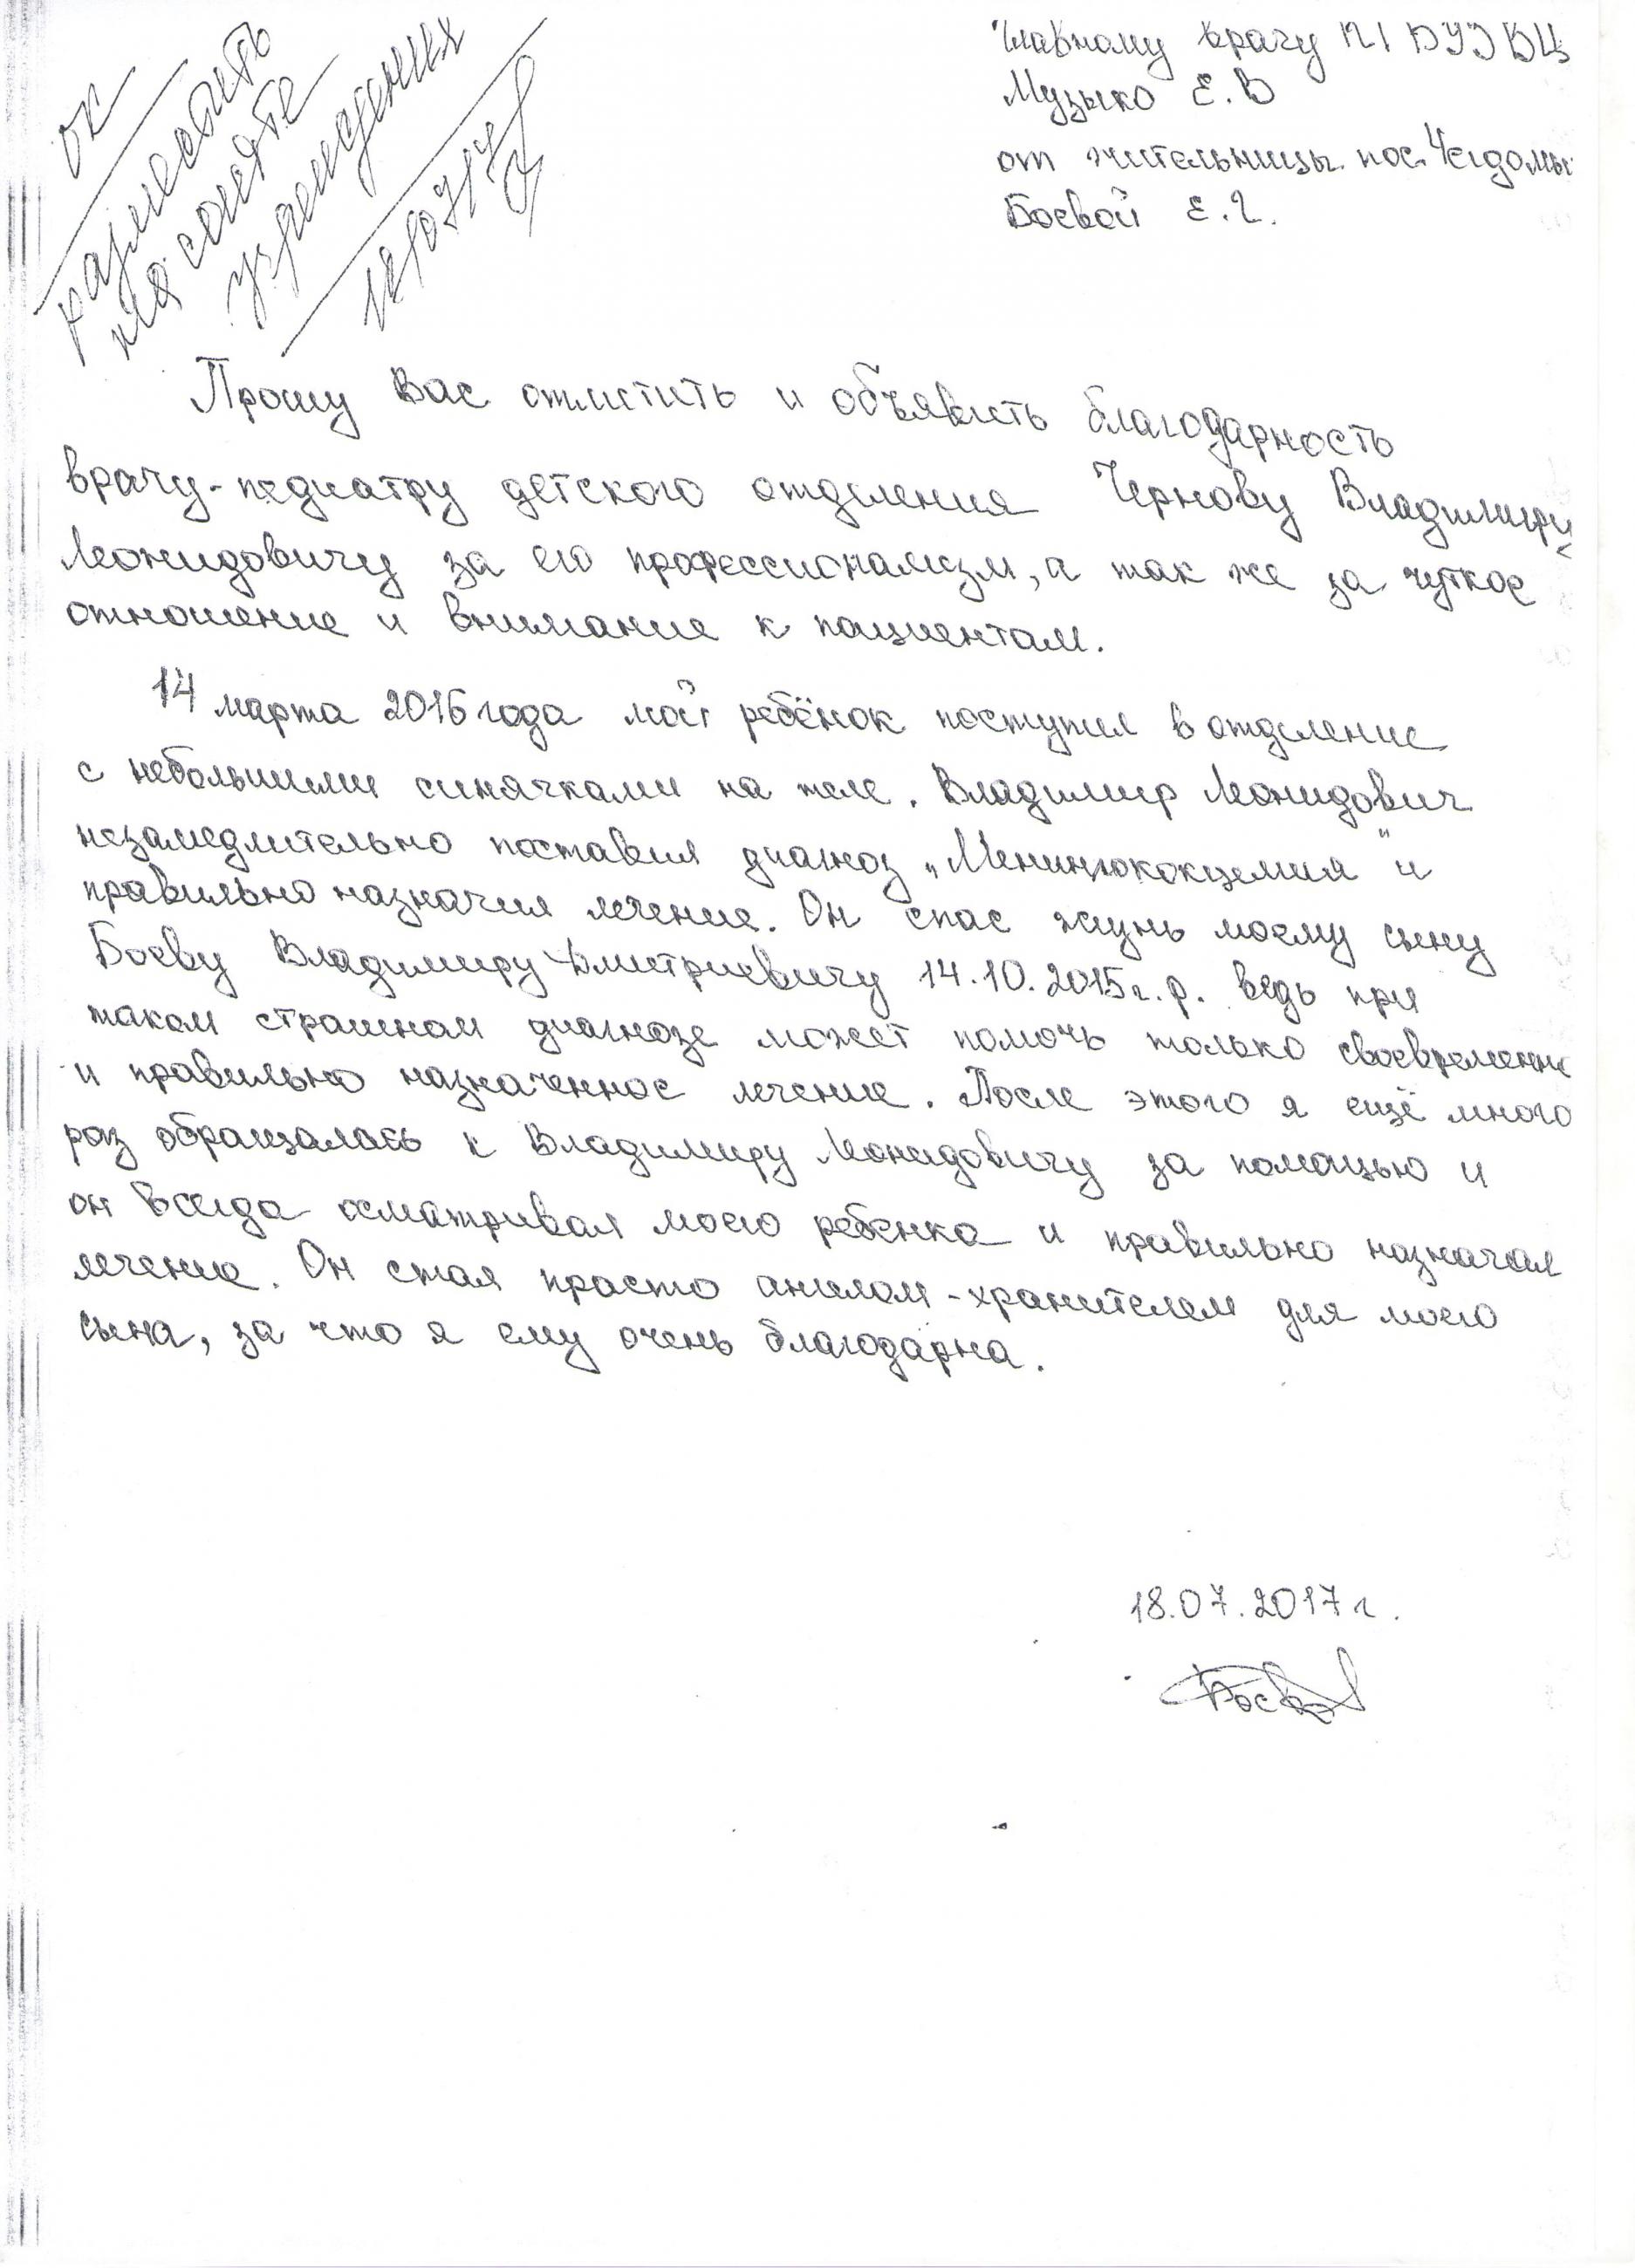 ОК
разместить
на сайте
учреждения
18/07/17
Главному врачу КГБУЗ ВЦ
Музыко Е.В
от жительницы пос. Чегдомы
Боевой Е.Г.
Прошу Вас отметить и объявить благодарность
врачу-педиатру детского отделения Чернову Владимиру
Леонидовичу за его профессионализм, а так же за чуткое
отношение и внимание к пациентам.
14 марта 2016 года мой ребёнок поступил в отделение
с небольшими синячками на теле. Владимир Леонидович
незамедлительно поставил диагноз „Менингококцемия" и
правильно назначил лечение. Он спас жизнь моему сыну
Боеву Владимиру Дмитриевичу 14.10.2015г.р. ведь при
таком страшном диагнозе может помочь только своевременно
и правильно назначенное лечение. После этого я ещё много
раз обращалась к Владимиру Леонидовичу за помощью и
он всегда осматривал моего ребенка и правильно назначал
лечение. Он стал просто ангелом-хранителем для моего
сына, за что я ему очень благодарна.
18.07.2017г.
Боева